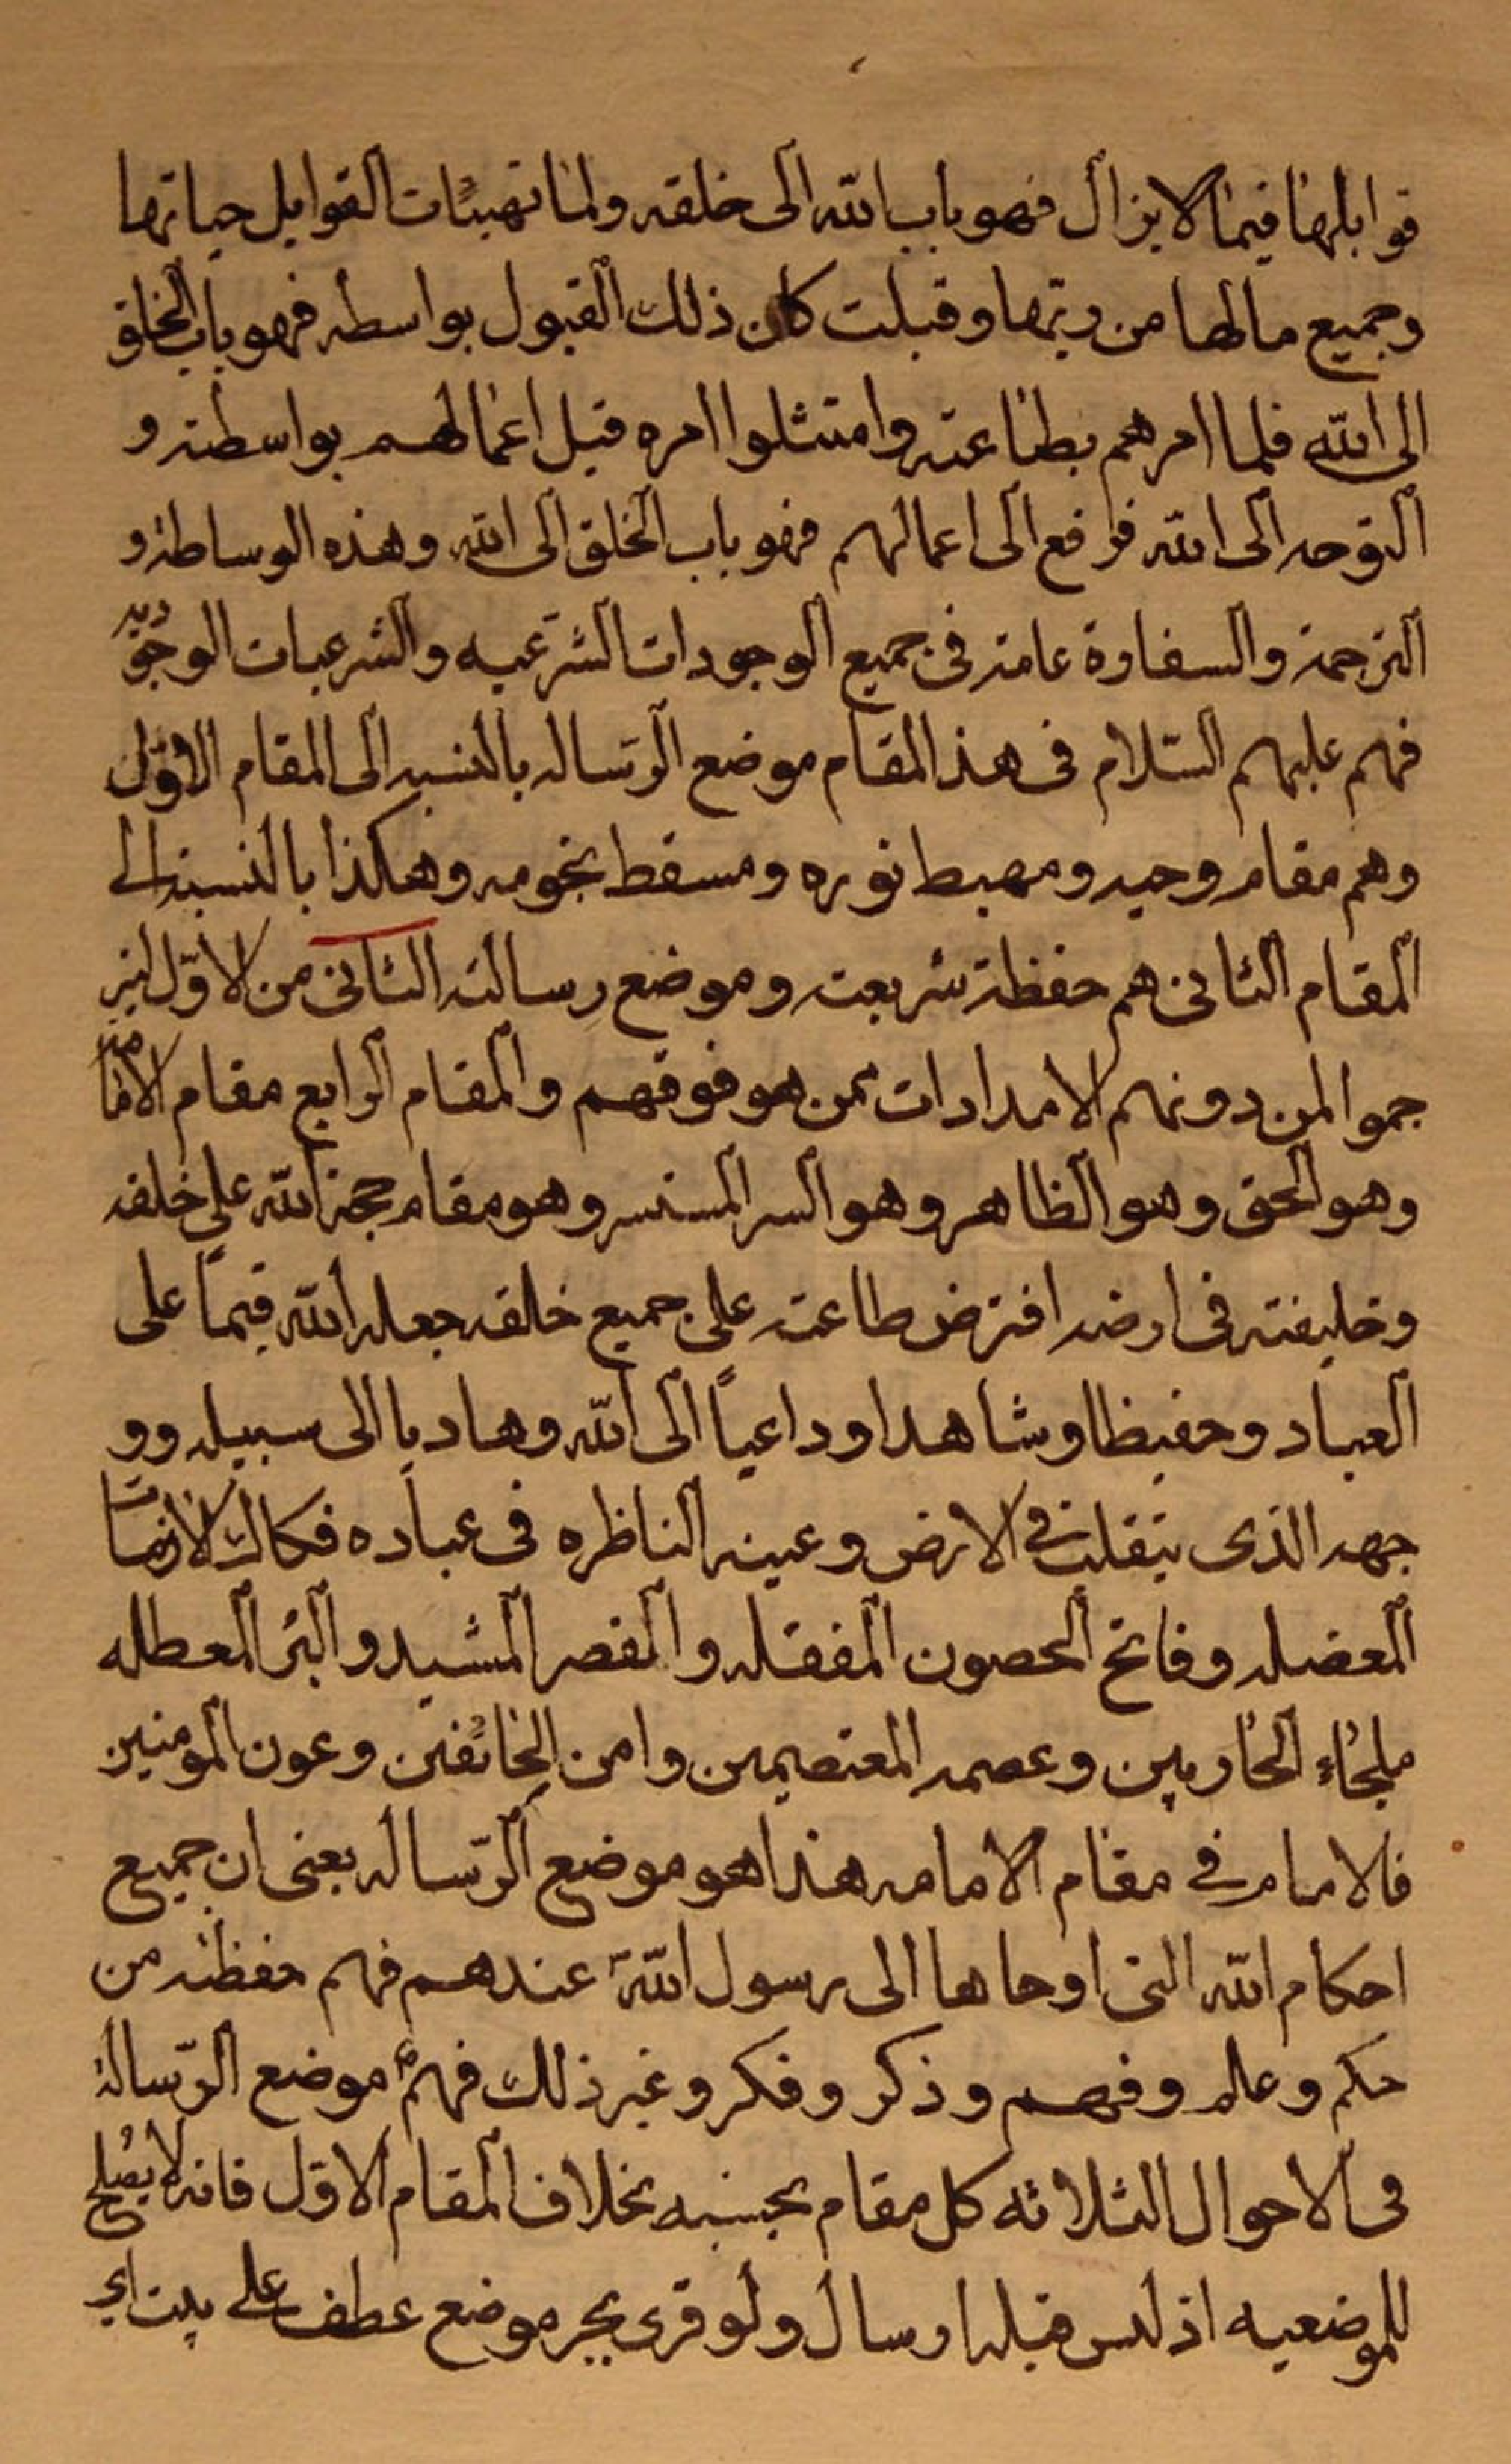 قوابلها فيما لا يزال فهو باب الله الى خلقه ولما تهيئات القوابل حياتها
وجميع مالها من ربّها وقبلت كان ذلك القبول بواسطه فهو باب الخلق
الى الله فلما امرهم بطاعته وامتثلوا امره قبل اعمالهم بواسطته و
التوجه الى الله فرافع الى اعمالهم فهو باب الخلق الى الله وهذه الوساطة و
الترجمة والسفارة عامة فى جميع الوجودات الشرّعيه والشرعيات الوجوديّه
فهم عليهم السّلام فى هذ المقام موضع الرّساله بالنسبه الى المقام الاوّل
وهم مقام وحيه ومهبط نوره ومسقط نجومه وهكذا بالنسبة الى
المقام الثانى هم حفظة شريعته وموضع رسالته الثانى من الاوّل ليتر
جموا لمن دونهم الامدادات ممن هو فوقهم والمقام الرابع مقام الامامة
وهو الحق وهو الظاهر وهو السر المستسر وهو مقام حجة الله على خلقه
وخليفته فى ارضه افترض طاعته على جميع خلقه جعله الله قيماً على
العباد وحفيظا وشاهدا وداعياً الى الله وهاديا الى سبيله وو
جهه الذى يتقلب فى الارض وعينه الناظره فى عباده فكاك الازمات
المعضله وفاتح الحصون المقفله والقصر المشيد والبئر المعطله
ملجاء الهاربين وعصمه المعتصيمين وامن الخائفين وعون المومنين
فالامام فى مقام الامامه هذا هو موضع الرّساله يعنى ان جميع
احكام الله التى اوحاها الى رسول الله ص عندهم فهم حفظته من
حكم وعلم وفهم وذكر وفكر وغير ذلك فهم ع موضع الرّسالة
فى الاحوال الثلاثه كل مقام بحسبه بخلاف المقام الاوّل فانه لا يصلح
للموضعيه اذ ليس قبله ارسال ولو قرى بجر موضع عطف على بيت اى